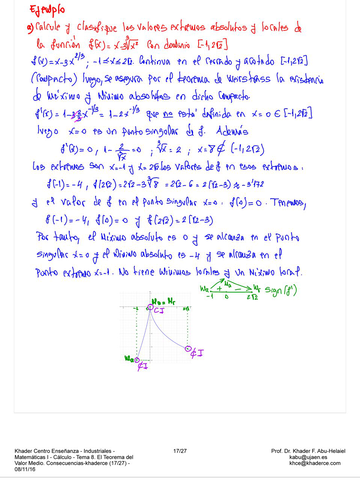 Ejemplo
a) Calcule y clasifique los valores extremos absolutos y locales de
la función f(x) = x-3∛x² con dominio [-1,2√2]
f(x) = x-3x^2/3, -1≤x≤2√2. Continua en el cerrado y acotado [-1,2√2]
(compacto) luego, se asegura por el teorema de Weierstrass la existencia
de Máximo y Mínimo absolutos en dicho compacto
f'(x) = 1-3·2/3 x^-1/3 = 1-2x^-1/3 que no está definida en x=0 ∈ [-1,2√2]
luego x=0 es un punto singular de f. Además
f'(x) = 0, 1-2/∛x = 0; ∛x = 2; x=8 ∉ (-1,2√2)
Los extremos son x=-1 y x=2√2 los valores de f en esos extremos:
f(-1) = -4, f(2√2) = 2√2-3∛8 = 2√2-6 = 2(√2-3) ≈ -3'172
y el valor de f en el punto singular x=0: f(0)=0. Tenemos,
f(-1) = -4, f(0) = 0 y f(2√2) = 2(√2-3)
Por tanto, el Máximo absoluto es 0 y se alcanza en el punto
singular x=0 y el Mínimo absoluto es -4 y se alcanza en el
Punto extremo x=-1. No tiene Mínimos locales y un Máximo local.
-1 0 2√2 sign(f')
CI
∉I
∉I
Khader Centro Enseñanza - Industriales -
Matemáticas I - Cálculo - Tema 8. El Teorema del
Valor Medio. Consecuencias-khaderce (17/27) -
08/11/16
17/27
Prof. Dr. Khader F. Abu-Helaiel
kabu@ujaen.es
khce@khaderce.com